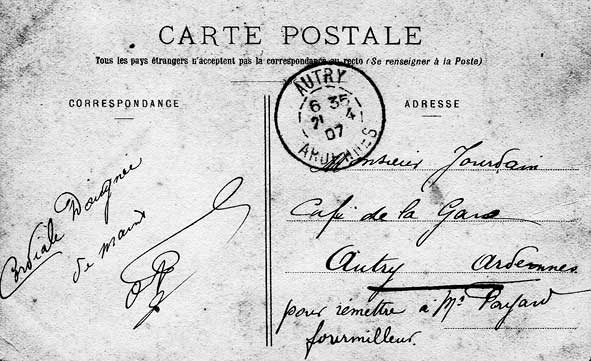 CARTE POSTALE
Tous les pays étrangers n'acceptent pas la correspondance au recto (Se renseigner à la Poste)
CORRESPONDANCE
ADRESSE
AUTRY
6 35
21 4
07
ARDENNES
Cordiale Poignée
de main
Monsieur Jourdain
Café de la Gare
Autry Ardennes
pour remettre à Mr Payard
fourmilleur.